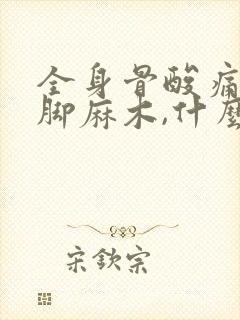 全身骨酸痛
脚麻木,什麼
宋欽宗